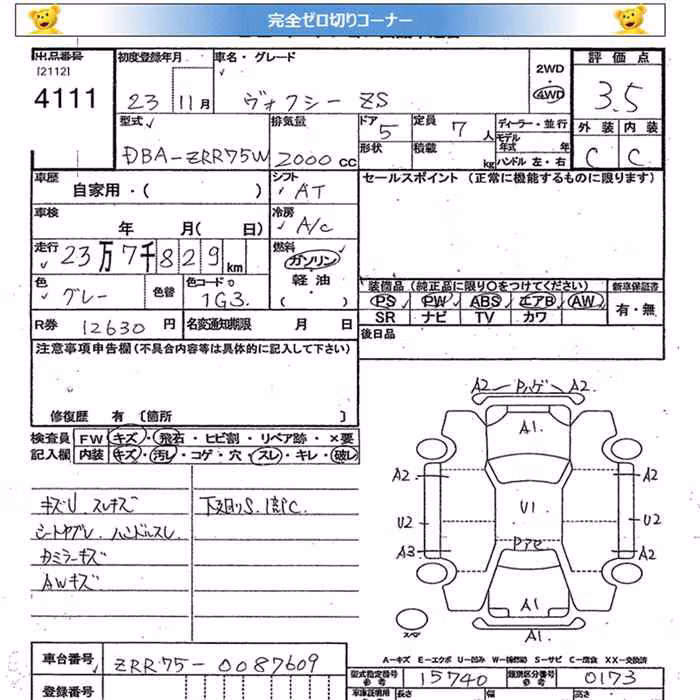 完全ゼロ切りコーナー
出品番号 初度登録年月 車名・グレード 2WD 評価点
[2112]
4111 23 11月 ヴォクシー ZS 4WD 3.5
型式 排気量 ドア 5 定員 7人 ディーラー・並行 外装 内装
モデル年式 年
DBA-ZRR75W 2000cc 形状 積載 kg ハンドル 左・右 C C
車歴 自家用・( ) シフト AT セールスポイント (正常に機能するものに限ります)
車検 年 月( 日) 冷房 A/C
走行 23万7千829km 燃料 ガソリン
軽油
( )
色 グレー 色替 色コード 1G3 装備品(純品に限り○をつけてください) 新車保証書
PS PW ABS エアB AW 有・無
SR ナビ TV カワ
R券 12630円 名変通知期限 月 日 後日品
注意事項申告欄(不具合内容等は具体的に記入して下さい)
修復歴 有 [箇所 ]
検査員 FW キズ・飛石・ヒビ割・リペア跡・×要
記入欄 内装 キズ・汚レ・コゲ・穴・スレ・キレ・破レ
キズU スレキズ 下廻りS
シートヤブレ ハンドルスレ
カミラーキズ
AWキズ
A2 ハゲ A2
A1
A2 A2
U2 U1 U2
A3 A2
A1
スペア A1
A-キズ E-エクボ U-凹み W-補修跡 S-サビ C-腐食 XX-交換済
車台番号 ZRR75-0087609
型式指定番号 参考 15740 類別区分番号 参考 0173
登録番号 車庫証明用 長さ 幅 高さ